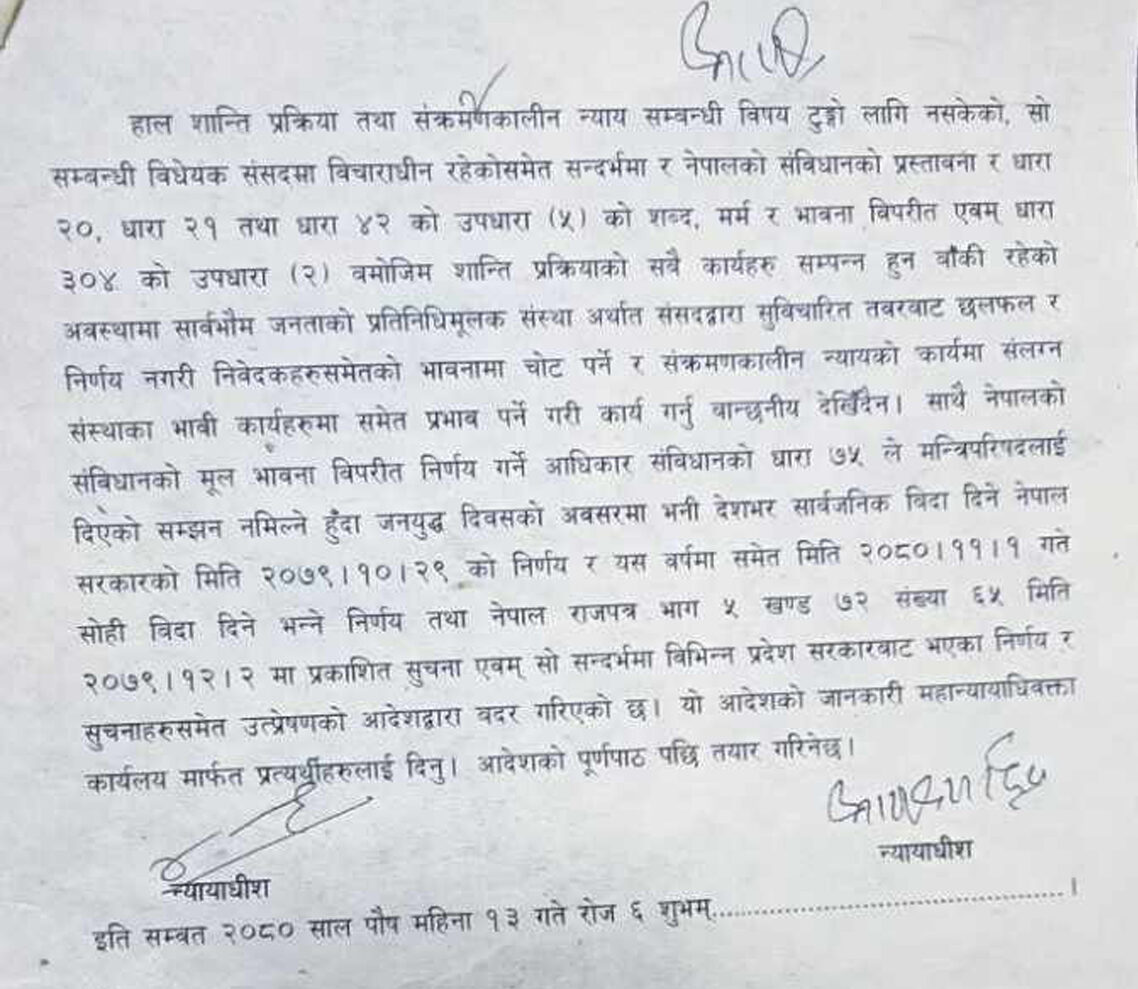 हाल शान्ति प्रक्रिया तथा संक्रमणकालीन न्याय सम्बन्धी विषय टुङ्गो लागि नसकेको, सो
सम्बन्धी विधेयक संसदमा विचाराधीन रहेकोसमेत सन्दर्भमा र नेपालको संविधानको प्रस्तावना र धारा
२०, धारा २१ तथा धारा ४२ को उपधारा (५) को शब्द, मर्म र भावना विपरीत एवम् धारा
३०४ को उपधारा (२) वमोजिम शान्ति प्रक्रियाको सवै कार्यहरु सम्पन्न हुन वाँकी रहेको
अवस्थामा सार्वभौम जनताको प्रतिनिधिमूलक संस्था अर्थात संसदद्वारा सुविचारित तवरवाट छलफल र
निर्णय नगरी निवेदकहरुसमेतको भावनामा चोट पर्ने र संक्रमणकालीन न्यायको कार्यमा संलग्न
संस्थाका भावी कार्यहरुमा समेत प्रभाव पर्ने गरी कार्य गर्नु वान्छनीय देखिँदैन। साथै नेपालको
संविधानको मूल भावना विपरीत निर्णय गर्ने आधिकार संविधानको धारा ७५ ले मन्त्रिपरिषदलाई
दिएको सम्झन नमिल्ने हुँदा जनयुद्ध दिवसको अवसरमा भनी देशभर सार्वजनिक विदा दिने नेपाल
सरकारको मिति २०७९।१०।२९ को निर्णय र यस वर्षमा समेत मिति २०८०।११।१ गते
सोही विदा दिने भन्ने निर्णय तथा नेपाल राजपत्र भाग ५ खण्ड ७२ संख्या ६५ मिति
२०७९।१२।२ मा प्रकाशित सुचना एवम् सो सन्दर्भमा विभिन्न प्रदेश सरकारवाट भएका निर्णय र
सुचनाहरुसमेत उत्प्रेषणको आदेशद्वारा वदर गरिएको छ। यो आदेशको जानकारी महान्यायाधिवक्ता
कार्यलय मार्फत प्रत्यर्थीहरुलाई दिनु। आदेशको पूर्णपाठ पछि तयार गरिनेछ।
न्यायाधीश
न्यायाधीश
इति सम्वत २०८० साल पौष महिना १३ गते रोज ६ शुभम्..............................।